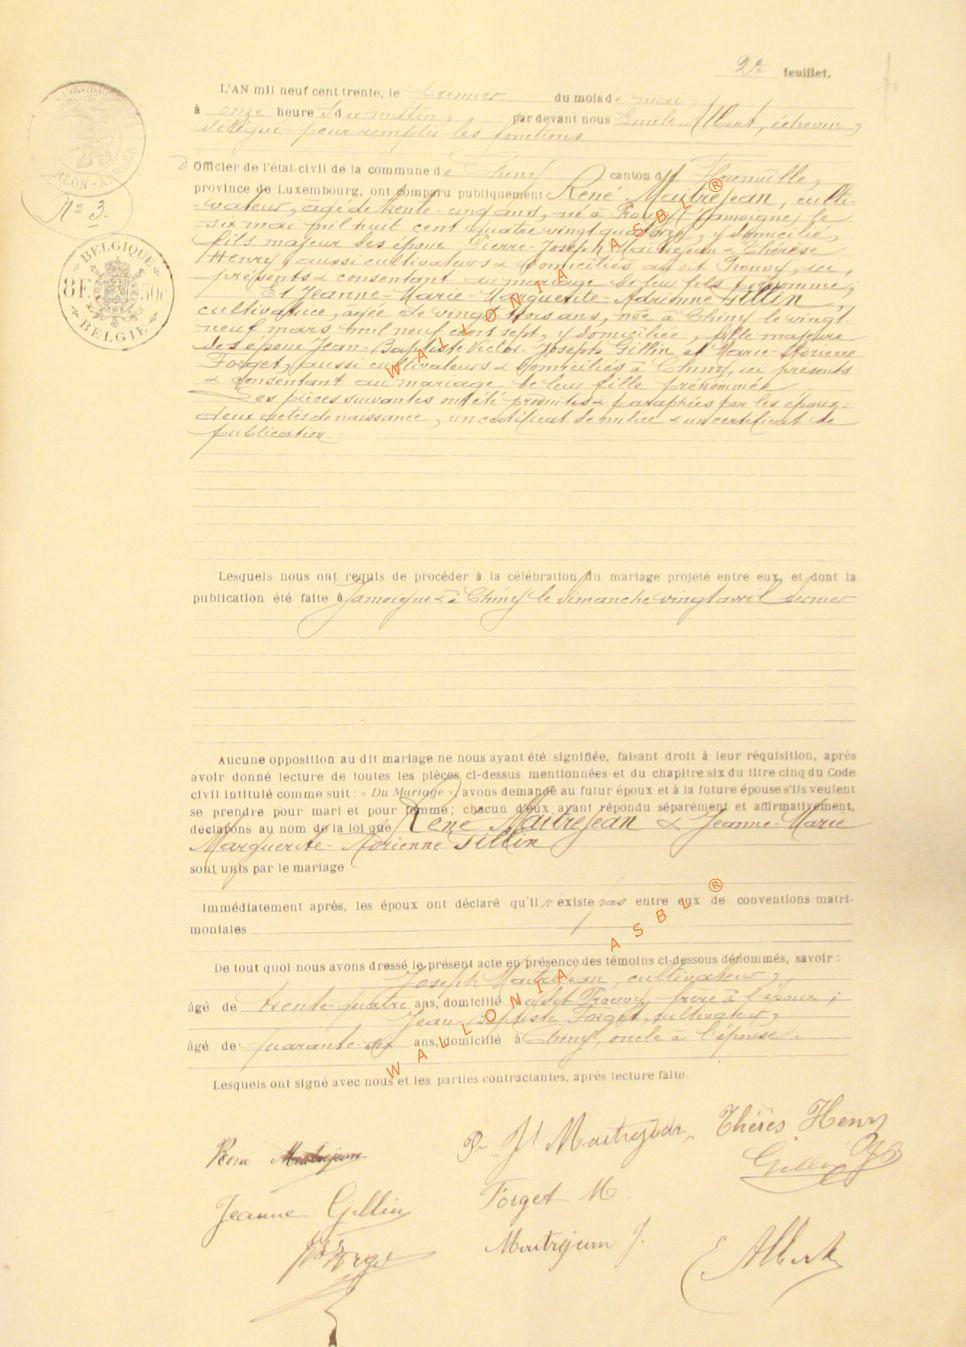 2e feuillet.
L'AN mil neuf cent trente, le premier du mois de mai,
à onze heures du matin, par devant nous Emile Albert, échevin,
délégué pour remplir les fonctions
d'Officier de l'état-civil de la commune de Chiny canton de Florenville,
N° 3.
province de Luxembourg, ont comparu publiquement René Maitrejean, culti-
-vateur, agé de trente-cinq ans, né à Prouvy (Jamoigne) le
six mai mil huit cent quatre vingt quatorze, y domicilié,
fils majeur des époux Pierre-Joseph Maitrejean & Thérèse
Henry, aussi cultivateurs & domiciliés au dit Prouvy, ici
présents & consentant au mariage de leur fils prénommé;
BELGIQUE
8F 50c
BELGIË
Et Jeanne-Marie-Marguerite-Adrienne Gillin,
cultivatrice, agée de vingt trois ans, née à Chiny le vingt
neuf mars mil neuf cent sept, y domiciliée, fille majeure
des époux Jean-Baptiste Victor-Joseph Gillin et Marie-
Forget, aussi cultivateurs & domiciliés à Chiny, ici présents
& consentant au mariage de leur fille prénommée
Les pièces suivantes ont été produites & paraphées par les époux:
deux actes de naissance, un certificat de milice & un certificat de
publication.
Lesquels nous ont requis de procéder à la célébration du mariage projeté entre eux, et dont la
publication été faite à Jamoigne & à Chiny le dimanche vingt avril dernier
Aucune opposition au dit mariage ne nous ayant été signifiée, faisant droit à leur réquisition, après
avoir donné lecture de toutes les pièces ci-dessus mentionnées et du chapitre six du titre cinq du Code
civil intitulé comme suit : « Du Mariage » avons demandé au futur époux et à la future épouse s'ils veulent
se prendre pour mari et pour femme; chacun d'eux ayant répondu séparément et affirmativement,
déclarons au nom de la loi que René Maitrejean & Jeanne-Marie
Marguerite-Adrienne Gillin
sont unis par le mariage
Immédiatement après, les époux ont déclaré qu'il n'existe pas entre eux de conventions matri-
moniales
De tout quoi nous avons dressé le présent acte en présence des témoins ci-dessous dénommés, savoir :
Joseph Maitrejean, cultivateur,
âgé de trente-quatre ans, domicilié au dit Prouvy, frère à l'époux;
Jean-Baptiste Forget, cultivateur,
âgé de quarante-six ans, domicilié à Chiny, oncle à l'épouse.
Lesquels ont signé avec nous et les parties contractantes, après lecture faite
René Maitrejean
Pre Jh Maitrejean
Thérès Henry
Gillin
Jeanne Gillin
Forget M.
Forget
Maitrejean J.
E Albert
WALLONIA ASBL ®
WALLONIA ASBL ®